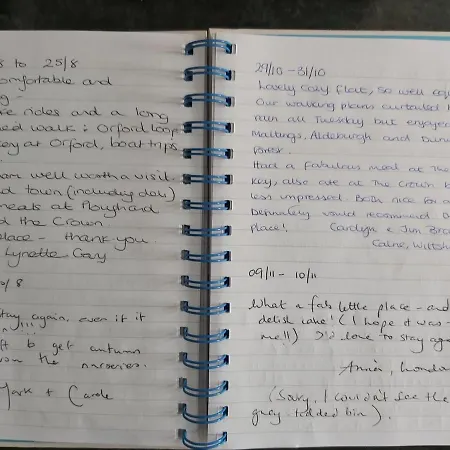 8 to 25/8
omfortable and
g -
re rides and a long
ed walk: Orford loop
key at Orford, boat trips
.
om well worth a visit
d town (including dab)
meals at Ploughard
d the Crown
place - thank you
Lynette Gay
0/8
stay again, even if it
n)!!!
ft to get autumn
rom the nurseries.
Mark + Carole
29/10 - 31/10
Lovely cosy flat, so well eq
Our walking plans curtailed
rain all Tuesday but enjoyed
Maltings, Aldeburgh and Dun
Had a fabulous meal at the
Key, also ate at the Crown b
less impressed. Both nice for a
Definately would recommend
place! Carolyn & Jim Bro
Calne, Wiltsh
09/11 - 10/11
What a fab little place - and
delish cake! (I hope it was
me!!) I'd love to stay aga
Anna, Londo
(Sorry, I couldn't see the
grey lidded bin).